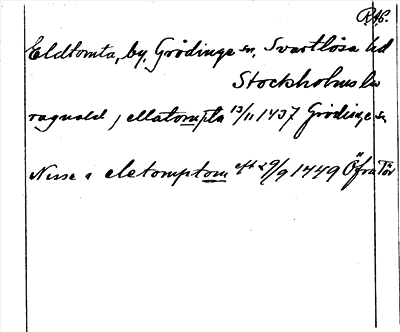 RAP.
Eldtomta, by, Grödinge sn, Svartlösa hd
Stockholms län
ragvald j ellatompta 13/11 1437 Grödinge sn
Nisse i eletomptom eft 29/9 1449 Öfra Tör